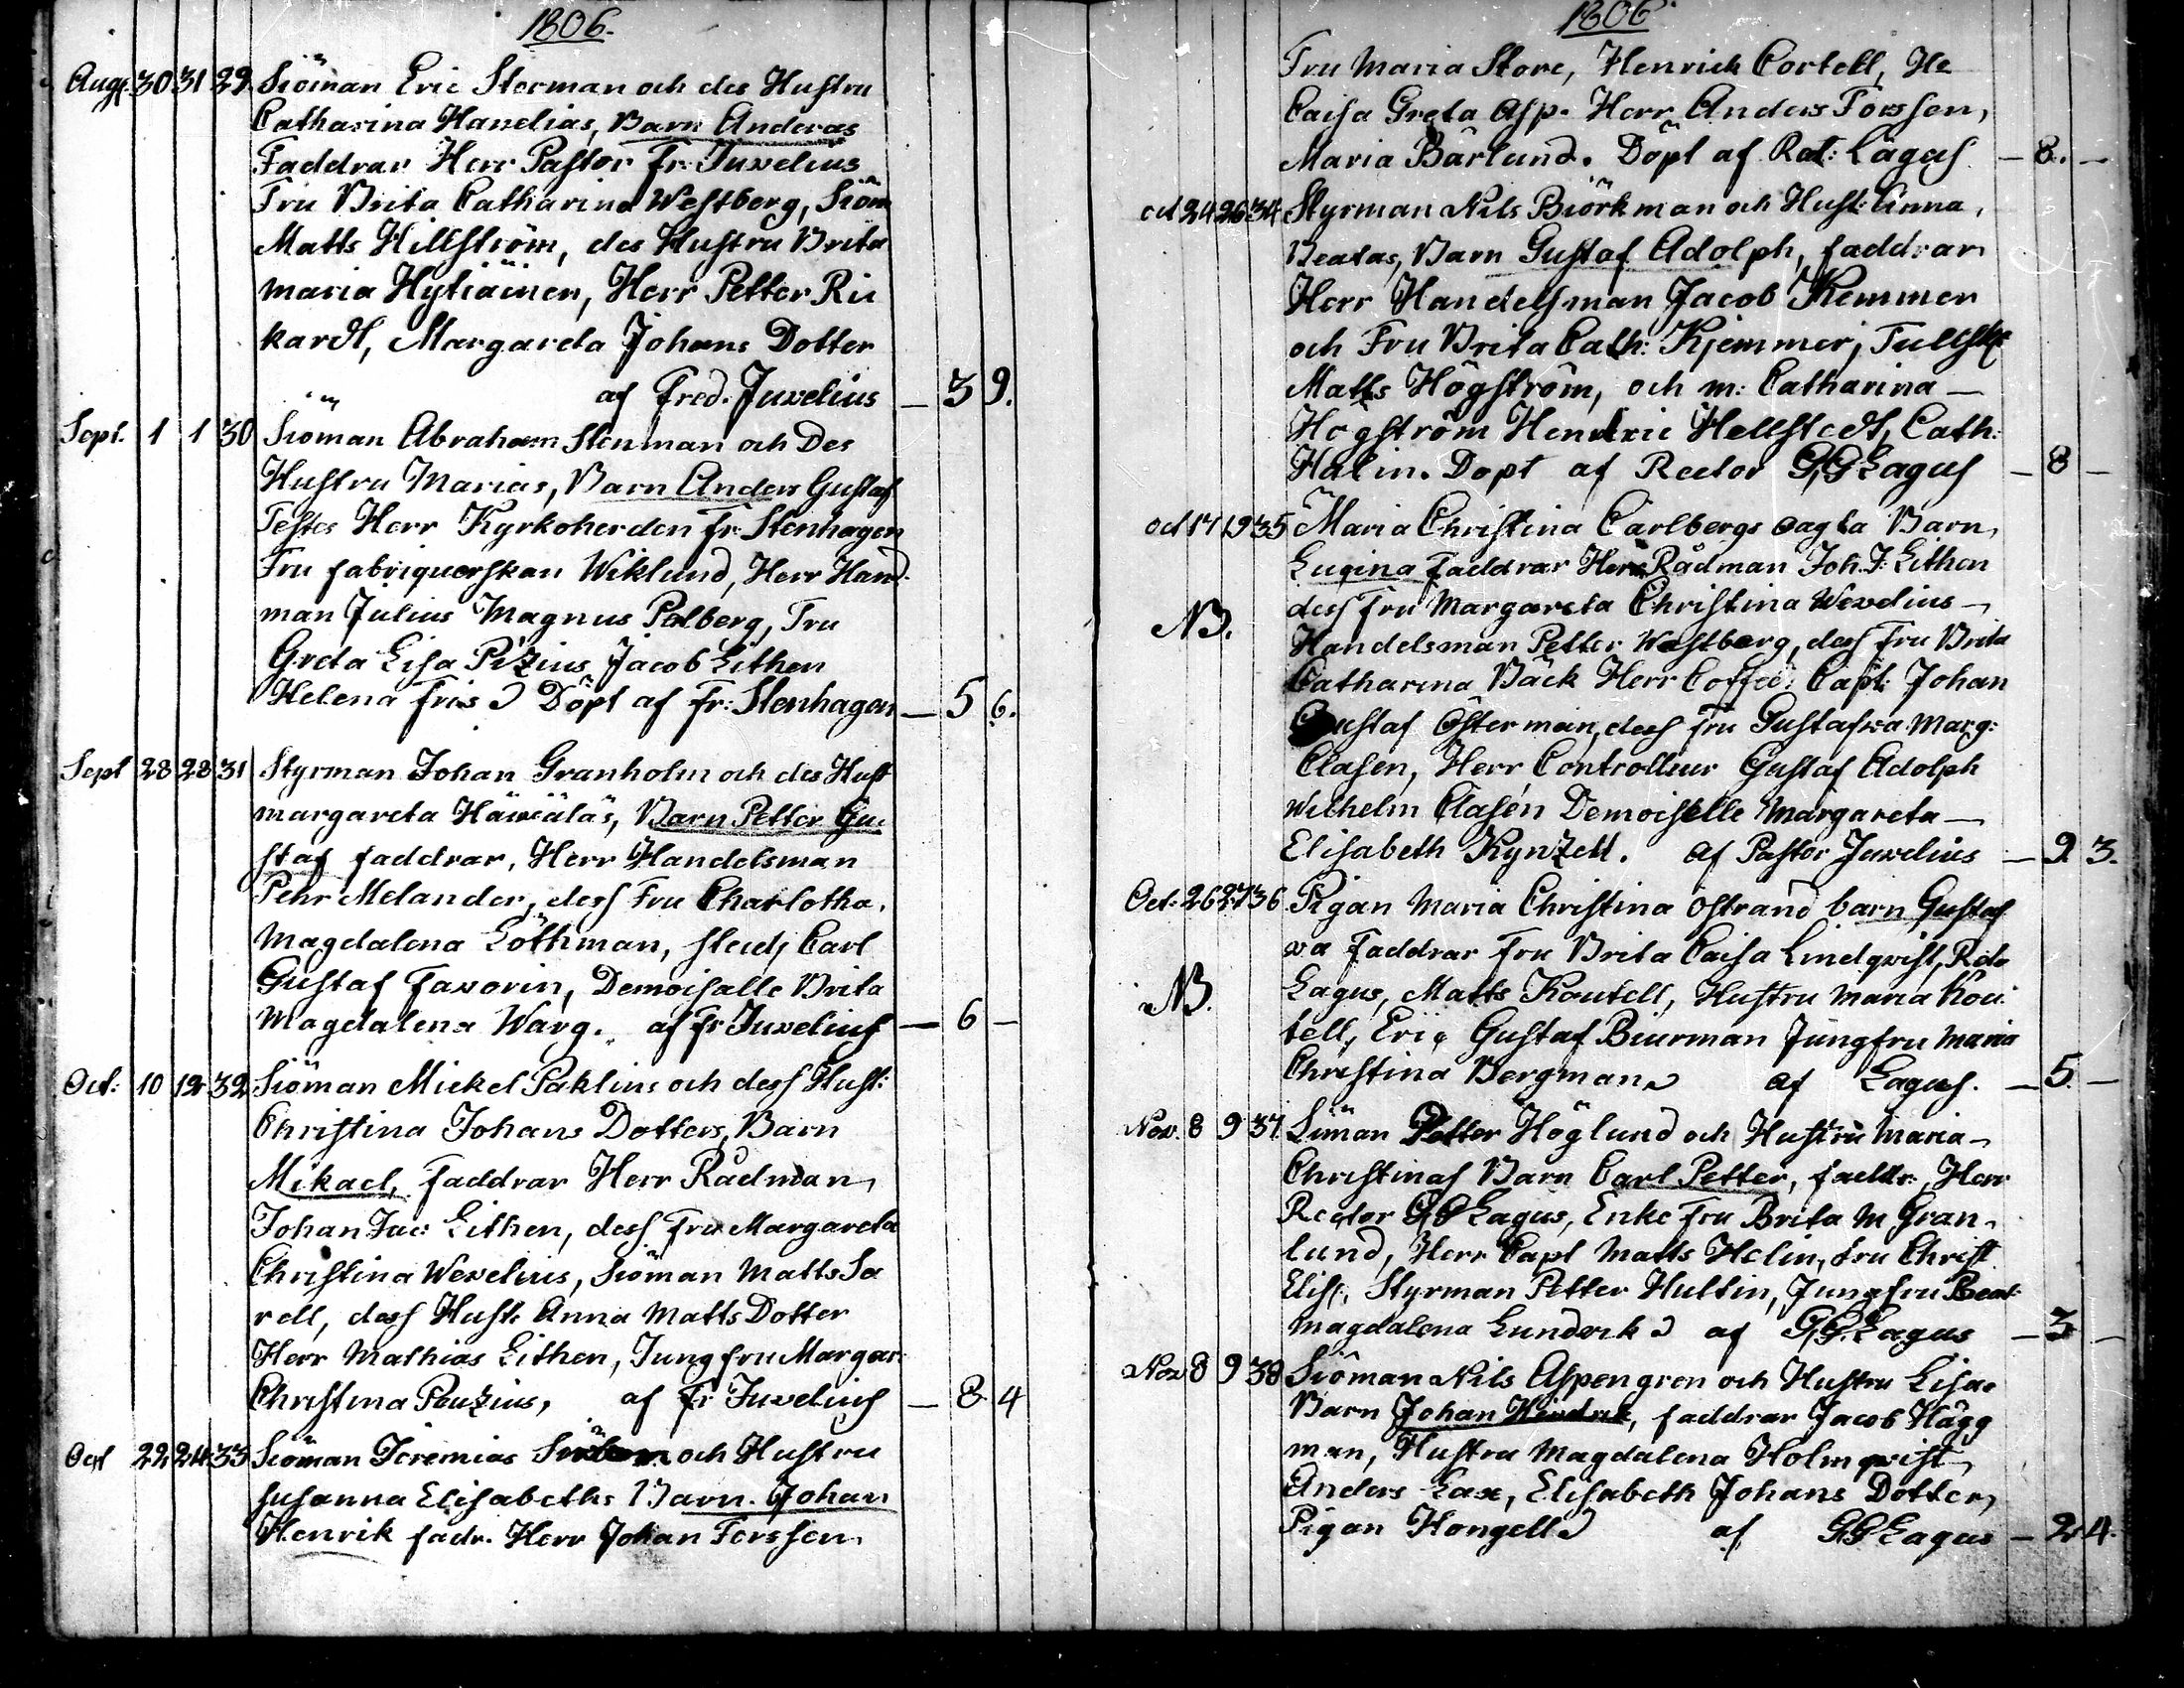 1806.
Aug. 30 31 29 Siöman Eric Sterman och des Hustru
Catharina Hanelias, Barn Anderas
Faddrar Herr Pastor Fr: Juvelius
Fru Brita Catharina Westberg, Siöm
Matts Hillström, des Hustru Brita
Maria Hytiäinen, Herr Petter Ric
kardt, Margareta Johans Dotter
af Fred. Juvelius — 3 9.
Sept. 1 1 30 Siöman Abraham Stenman och Des
Hustru Marias, Barn Anders Gustaf
Testes Herr Kyrkoherden Fr: Stenhagen
Fru fabriquerskan Wiklund, Herr Hand
man Julius Magnus Polberg, Fru
Greta Lisa Pezius Jacob Lithen
Helena Friis Döpt af Fr: Stenhagen — 5 6.
Sept 28 28 31 Styrman Johan Granholm och des Hust
margareta Barn Petter Gu
staf faddrar, Herr Handelsman
Pehr Melander, dess Fru Charlotha
Magdalena Löthman, stud, Carl
Gustaf Favorin, Demoisalle Brita
Magdalena Warg. af Fr Juvelius — 6 —
Oct: 10 12 32 Siöman Mickel Paklins och dess Hust:
Christina Johans Dotters, Barn
Mikael, faddrar Herr Rådman
Johan Jac: Lithen, dess Fru Margareta
Christina Wevelius, Siöman Matts Sa
rell, dess Hust: Anna Matts Dotter
Herr Mathias Lithen, Jungfru Margar:
Christina Peuzius, af Fr Juvelius — 8 4
Oct 22 24 33 Siöman Jeremias och Hustru
Susanna Elisabeths Barn. Johan
Henrik fadr. Herr Johan Forssen
1806.
Fru Maria Store, Henrick Cortell, He
Caisa Greta Asp. Herr Anders Forssen,
Maria Bärlund. Döpt af Rect: Lagus — 8. —
oct 24 26 34 Styrman Nils Biörkman och Hust: Anna
Beatas, Barn Gustaf Adolph, faddrar
Herr Handelsman Jacob Kemmer
och Fru Brita Cath: Kjemmer,
Matts Högström, och m: Catharina —
Högström Hendric Hellstedt, Cath:
Halin. Döpt af Rector G,G Lagus — 8 —
oct 17 19 35 Maria Christina Carlbergs oagta Barn
Lugina faddrar Herr Rådman Joh. J: Lithen
NB. dess Fru Margareta Christina Wevelius —
Handelsman Petter Westberg, dess Fru Brita
Catharina Bäck Herr Coffed: Capt: Johan
Gustaf Österman, dess Fru Gustafva Marg:
Clasen, Herr Controlleur Gustaf Adolph
Wilhelm Clasén Demoiselle Margareta —
Elisabeth Kynzell. af Pastor Juvelius — 9 3.
Oct. 26 27 36 Pigan Maria Christina Östrand barn Gustaf
va Faddrar Fru Brita Caisa Lindqvist, Rect:
NB. Lagus, Matts Koutell, Hustru Maria Kou
tell, Eric Gustaf Biurman Jungfru Maria
Christina Bergman af Lagus. — 5. —
Nov. 8 9 37 Siöman Petter Höglund och Hustru Maria —
Christinas Barn Carl Petter, faddr: Herr
Rector G G Lagus, Enke Fru Brita M Gran
lund, Herr Capt Matts Helin, fru Christ
Elis:, Styrman Petter Hultin, Jungfru Beat:
Magdalena Lundvik af G,G. Lagus — 3 —
Nov 8 9 38 Siöman Nils Aspengren och Hustru Lisa
Barn Johan Hindrik, faddrar Jacob Hägg
man, Hustru Magdalena Holmqvist
Anders Lax, Elisabeth Johans Dotter
Pigan Hongell af G G Lagus — 2 4.